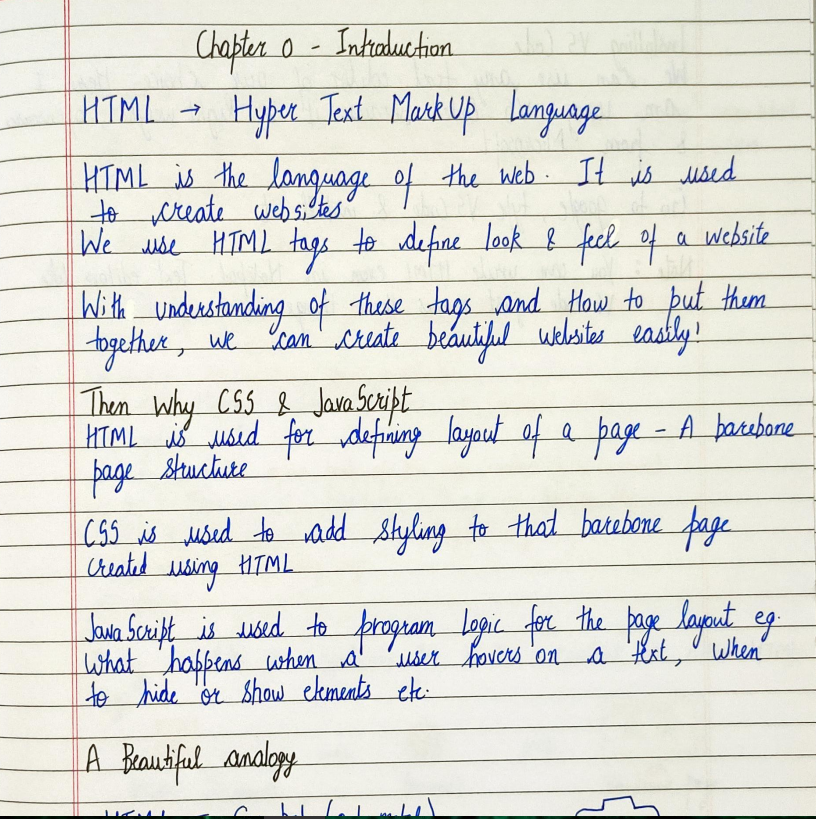 Chapter 0 - Introduction
HTML → Hyper Text MarkUp Language
HTML is the language of the web. It is used
to create websites
We use HTML tags to define look & feel of a website
With understanding of these tags and How to put them
together, we can create beautiful websites easily!
Then Why CSS & JavaScript
HTML is used for defining layout of a page - A barebone
page structure
CSS is used to add styling to that barebone page
created using HTML
JavaScript is used to program Logic for the page layout eg.
What happens when a user hovers on a text, when
to hide or show elements etc.
A Beautiful analogy
HTML